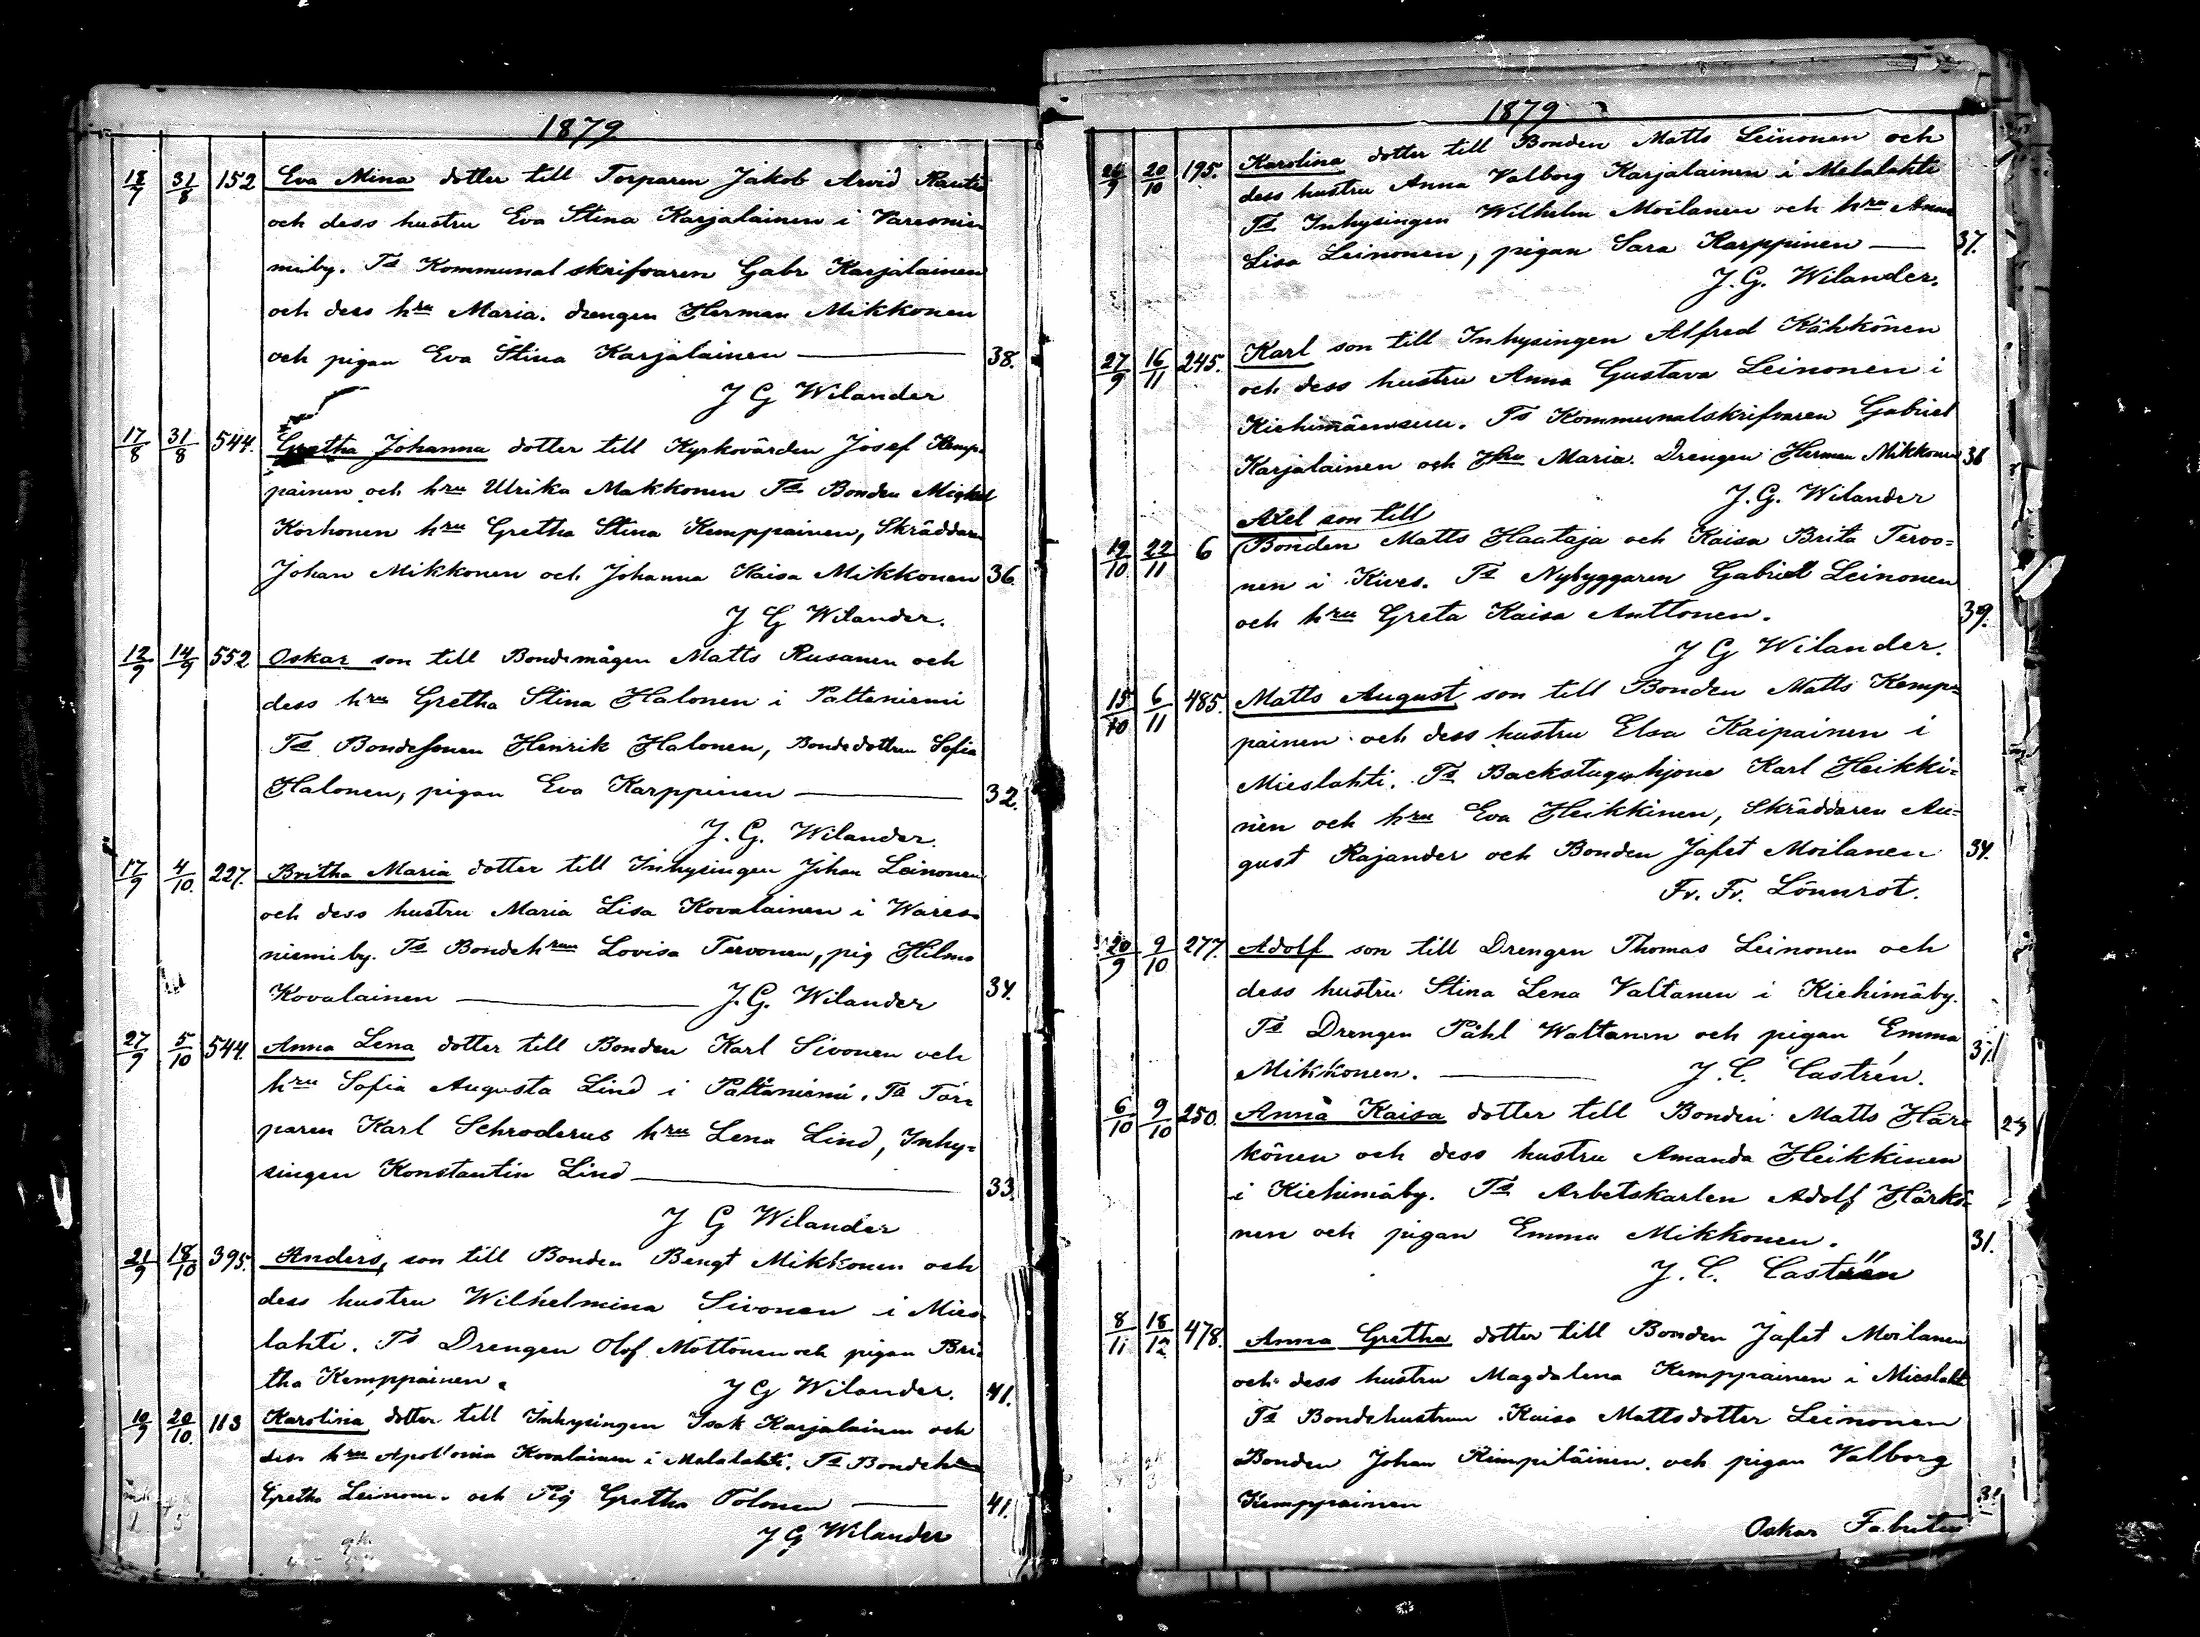 1879
18/7 31/8 152 Eva Mina dotter till Torparen Jakob Arvid Rauti
och dess hustru Eva Stina Karjalainen i Varesnie-
miby. Ts Kommunalskrifvaren Gabr Karjalainen
och dess hru Maria. drengen Herman Mikkonen
och pigan Eva Stina Karjalainen 38.
J G Wilander
17/8 31/8 544. Gretha Johanna dotter till Kyrkovärden Josef Kemp-
painen och hru Ulrika Makkonen Ts Bonden Mickel
Korhonen hru Gretha Stina Kemppainen, Skräddaren
Johan Mikkonen och Johanna Kaisa Mikkonen 36.
J G Wilander.
12/9 14/9 552 Oskar son till Bondemågen Matts Rusanen och
dess hru Gretha Stina Halonen i Paltaniemi
Ts Bondesonen Henrik Halonen, Bondedottren Sofia
Halonen, pigan Eva Karppinen 32.
J. G. Wilander.
17/9 4/10. 227. Britha Maria dotter till Inhysingen Johan Leinonen
och dess hustru Maria Lisa Kovalainen i Wares-
niemi by. Ts Bondehrun Lovisa Tervonen, pig Hilma
Kovalainen J. G. Wilander 34.
27/9 5/10 544. Anna Lena dotter till Bonden Karl Sivonen och
hru Sofia Augusta Lind i Paltaniemi. Ts Tor-
paren Karl Schroderus hru Lena Lind, Inhy-
singen Konstantin Lind 33.
J G Wilander
21/9 18/10 395. Anders, son till Bonden Bengt Mikkonen och
dess hustru Wilhelmina Sivonen i Mies-
lahti. Ts Drengen Olof Mottönen och pigan Bri-
tha Kemppainen. J G Wilander. 41.
19/9 20/10. 113 Karolina dotter till Inhysingen Isak Karjalainen och
dess hru Apollonia Kovalainen i Melalahti. Ts Bondehru
Gretha Leinonen och Pig Gretha Tolonen 41.
J G Wilander
1879
26/9 20/10 195. Karolina dotter till Bonden Matts Leinonen och
dess hustru Anna Valborg Karjalainen i Melalahti
Ts Inhysingen Wilhelm Moilanen och hru Anna
Lisa Leinonen, pigan Sara Karppinen 37.
J. G. Wilander.
27/9 16/11 245. Karl son till Inhysingen Alfred Kähkönen
och dess hustru Anna Gustava Leinonen i
Kiehimäensuu. Ts Kommunalskrifvaren Gabriel
Karjalainen och Hru Maria. Drengen Herman Mikkonen 36
J. G. Wilander
Axel son till
19/10 22/11 6 Bonden Matts Haataja och Kaisa Brita Tervo-
nen i Kives. Ts Nybyggaren Gabriel Leinonen
och hru Greta Kaisa Anttonen. 39.
J G Wilander.
15/10 6/11 485. Matts August son till Bonden Matts Kemp-
painen och dess hustru Elsa Kaipainen i
Mieslahti. Ts Backstuguhjone Karl Heikki-
nen och hru Eva Heikkinen, Skräddaren Au-
gust Rajander och Bonden Jafet Moilanen 34.
Fr. Fr. Lönnrot.
20/9 9/10 277. Adolf son till Drengen Thomas Leinonen och
dess hustru Stina Lena Valtanen i Kiehimäby.
Ts Drengen Påhl Waltanen och pigan Emma
Mikkonen. J. C. Castrén. 31.
6/10 9/10 250. Anna Kaisa dotter till Bonden Matts Här-
könen och dess hustru Amanda Heikkinen
i Kiehimäby. Ts Arbetskarlen Adolf Härkö-
nen och pigan Emma Mikkonen. 31.
J. C. Castrén
8/11 18/12 478. Anna Gretha dotter till Bonden Jafet Moilanen
och dess hustru Magdalena Kemppainen i Mieslahti
Ts Bondehustrun Kaisa Mattsdotter Leinonen
Bonden Johan Kimpiläinen och pigan Valborg
Kemppainen 31
Oskar Fabritius